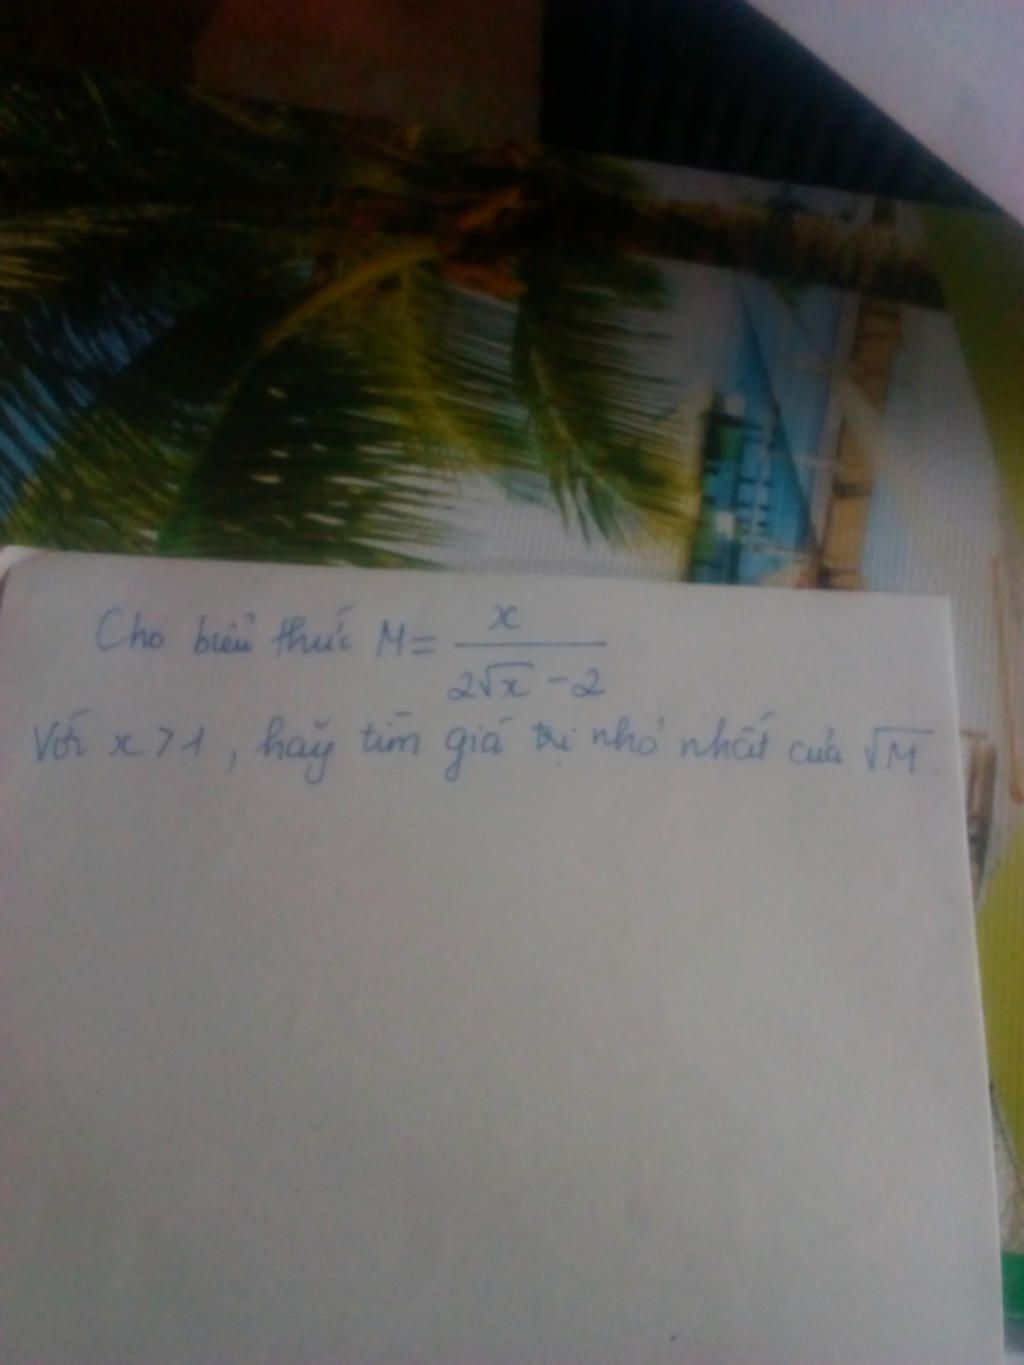 Cho biểu thức M = \frac{x}{2\sqrt{x} - 2}
Với x > 1, hãy tìm giá trị nhỏ nhất của \sqrt{M}.